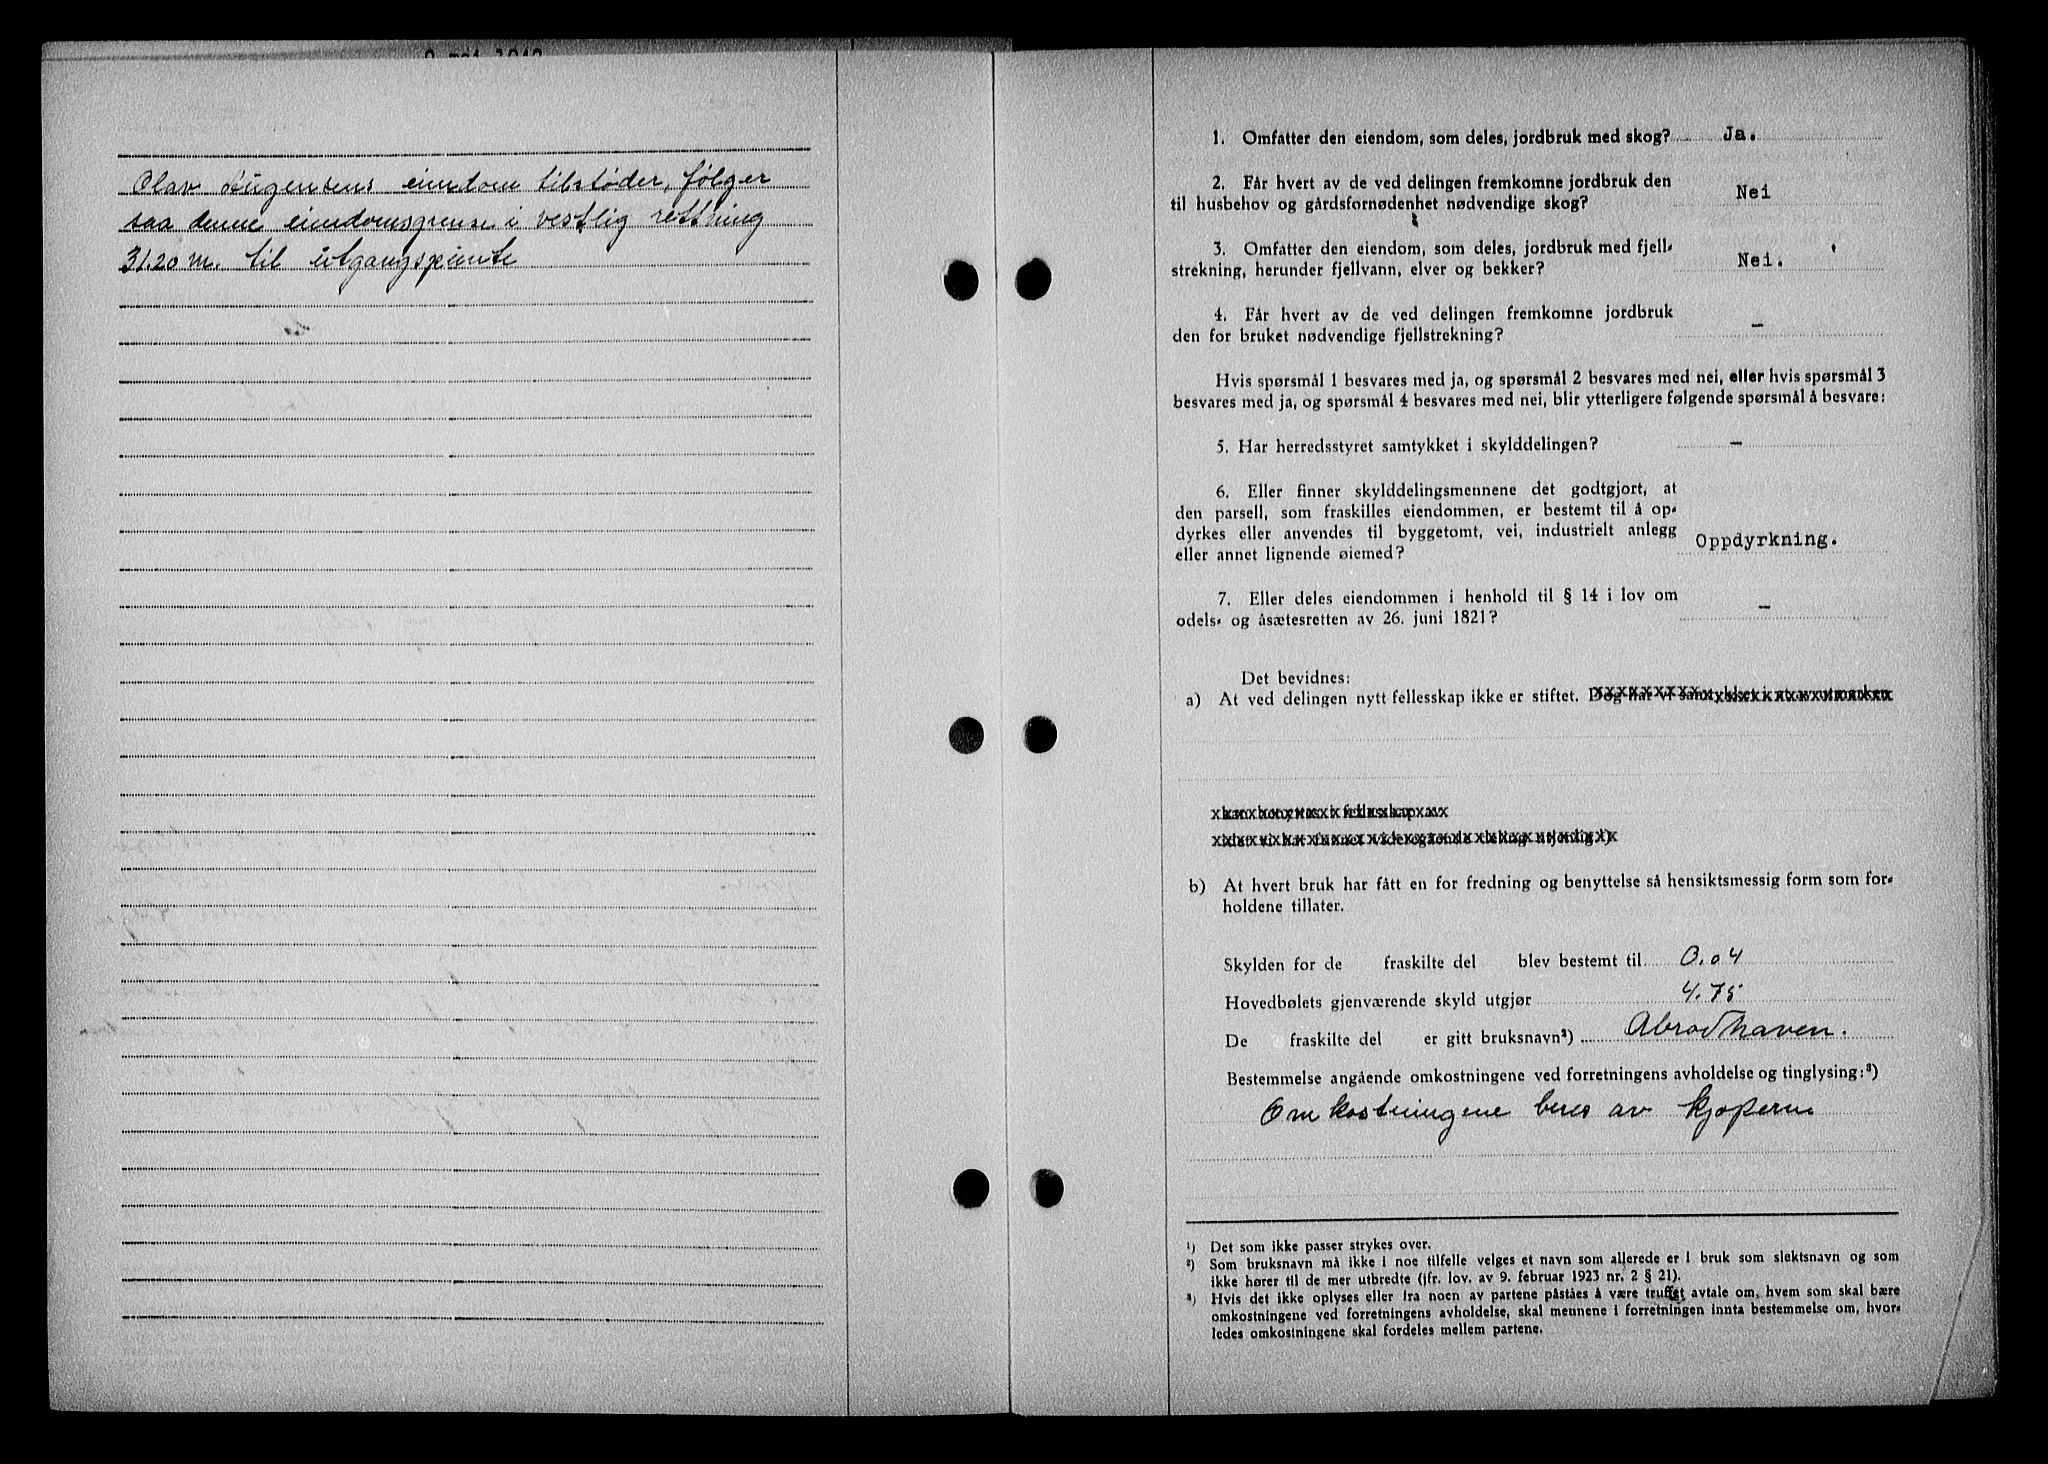 Olav Augensens eiendom tilstøder, følger
saa denne eiendomsgrense i vestlig rettning
31.20 m. til utgangspunte
1. Omfatter den eiendom, som deles, jordbruk med skog? Ja.
2. Får hvert av de ved delingen fremkomne jordbruk den
til husbehov og gårdsfornødenhet nødvendige skog? Nei
3. Omfatter den eiendom, som deles, jordbruk med fjell-
strekning, herunder fjellvann, elver og bekker? Nei.
4. Får hvert av de ved delingen fremkomne jordbruk
den for bruket nødvendige fjellstrekning? –
Hvis spørsmål 1 besvares med ja, og spørsmål 2 besvares med nei, eller hvis spørsmål 3
besvares med ja, og spørsmål 4 besvares med nei, blir ytterligere følgende spørsmål å besvare:
5. Har herredsstyret samtykket i skylddelingen? –
6. Eller finner skylddelingsmennene det godtgjort, at
den parsell, som fraskilles eiendommen, er bestemt til å op-
dyrkes eller anvendes til byggetomt, vei, industrielt anlegg
eller annet lignende øiemed? Oppdyrkning.
7. Eller deles eiendommen i henhold til § 14 i lov om
odels- og åsætesretten av 26. juni 1821? –
Det bevidnes:
a) At ved delingen nytt fellesskap ikke er stiftet. Dog har vi samtykket i at av utmarken
kan benyttes i fellesskap av
idet vi har funnet videregående deling utjenlig.¹)
b) At hvert bruk har fått en for fredning og benyttelse så hensiktsmessig form som for-
holdene tillater.
Skylden for de fraskilte del blev bestemt til 0.04
Hovedbølets gjenværende skyld utgjør 4.75
De fraskilte del er gitt bruksnavn²) Abrodhaven.
Bestemmelse angående omkostningene ved forretningens avholdelse og tinglysing:³)
Omkostningene beres av kjøperne
¹) Det som ikke passer strykes over.
²) Som bruksnavn må ikke i noe tilfelle velges et navn som allerede er i bruk som slektsnavn og som
ikke hører til de mer utbredte (jfr. lov. av 9. februar 1923 nr. 2 § 21).
³) Hvis det ikke oplyses eller fra noen av partene påståes å være truffet avtale om, hvem som skal bære
omkostningene ved forretningens avholdelse, skal mennene i forretningen innta bestemmelse om, hvor-
ledes omkostningene skal fordeles mellem partene.